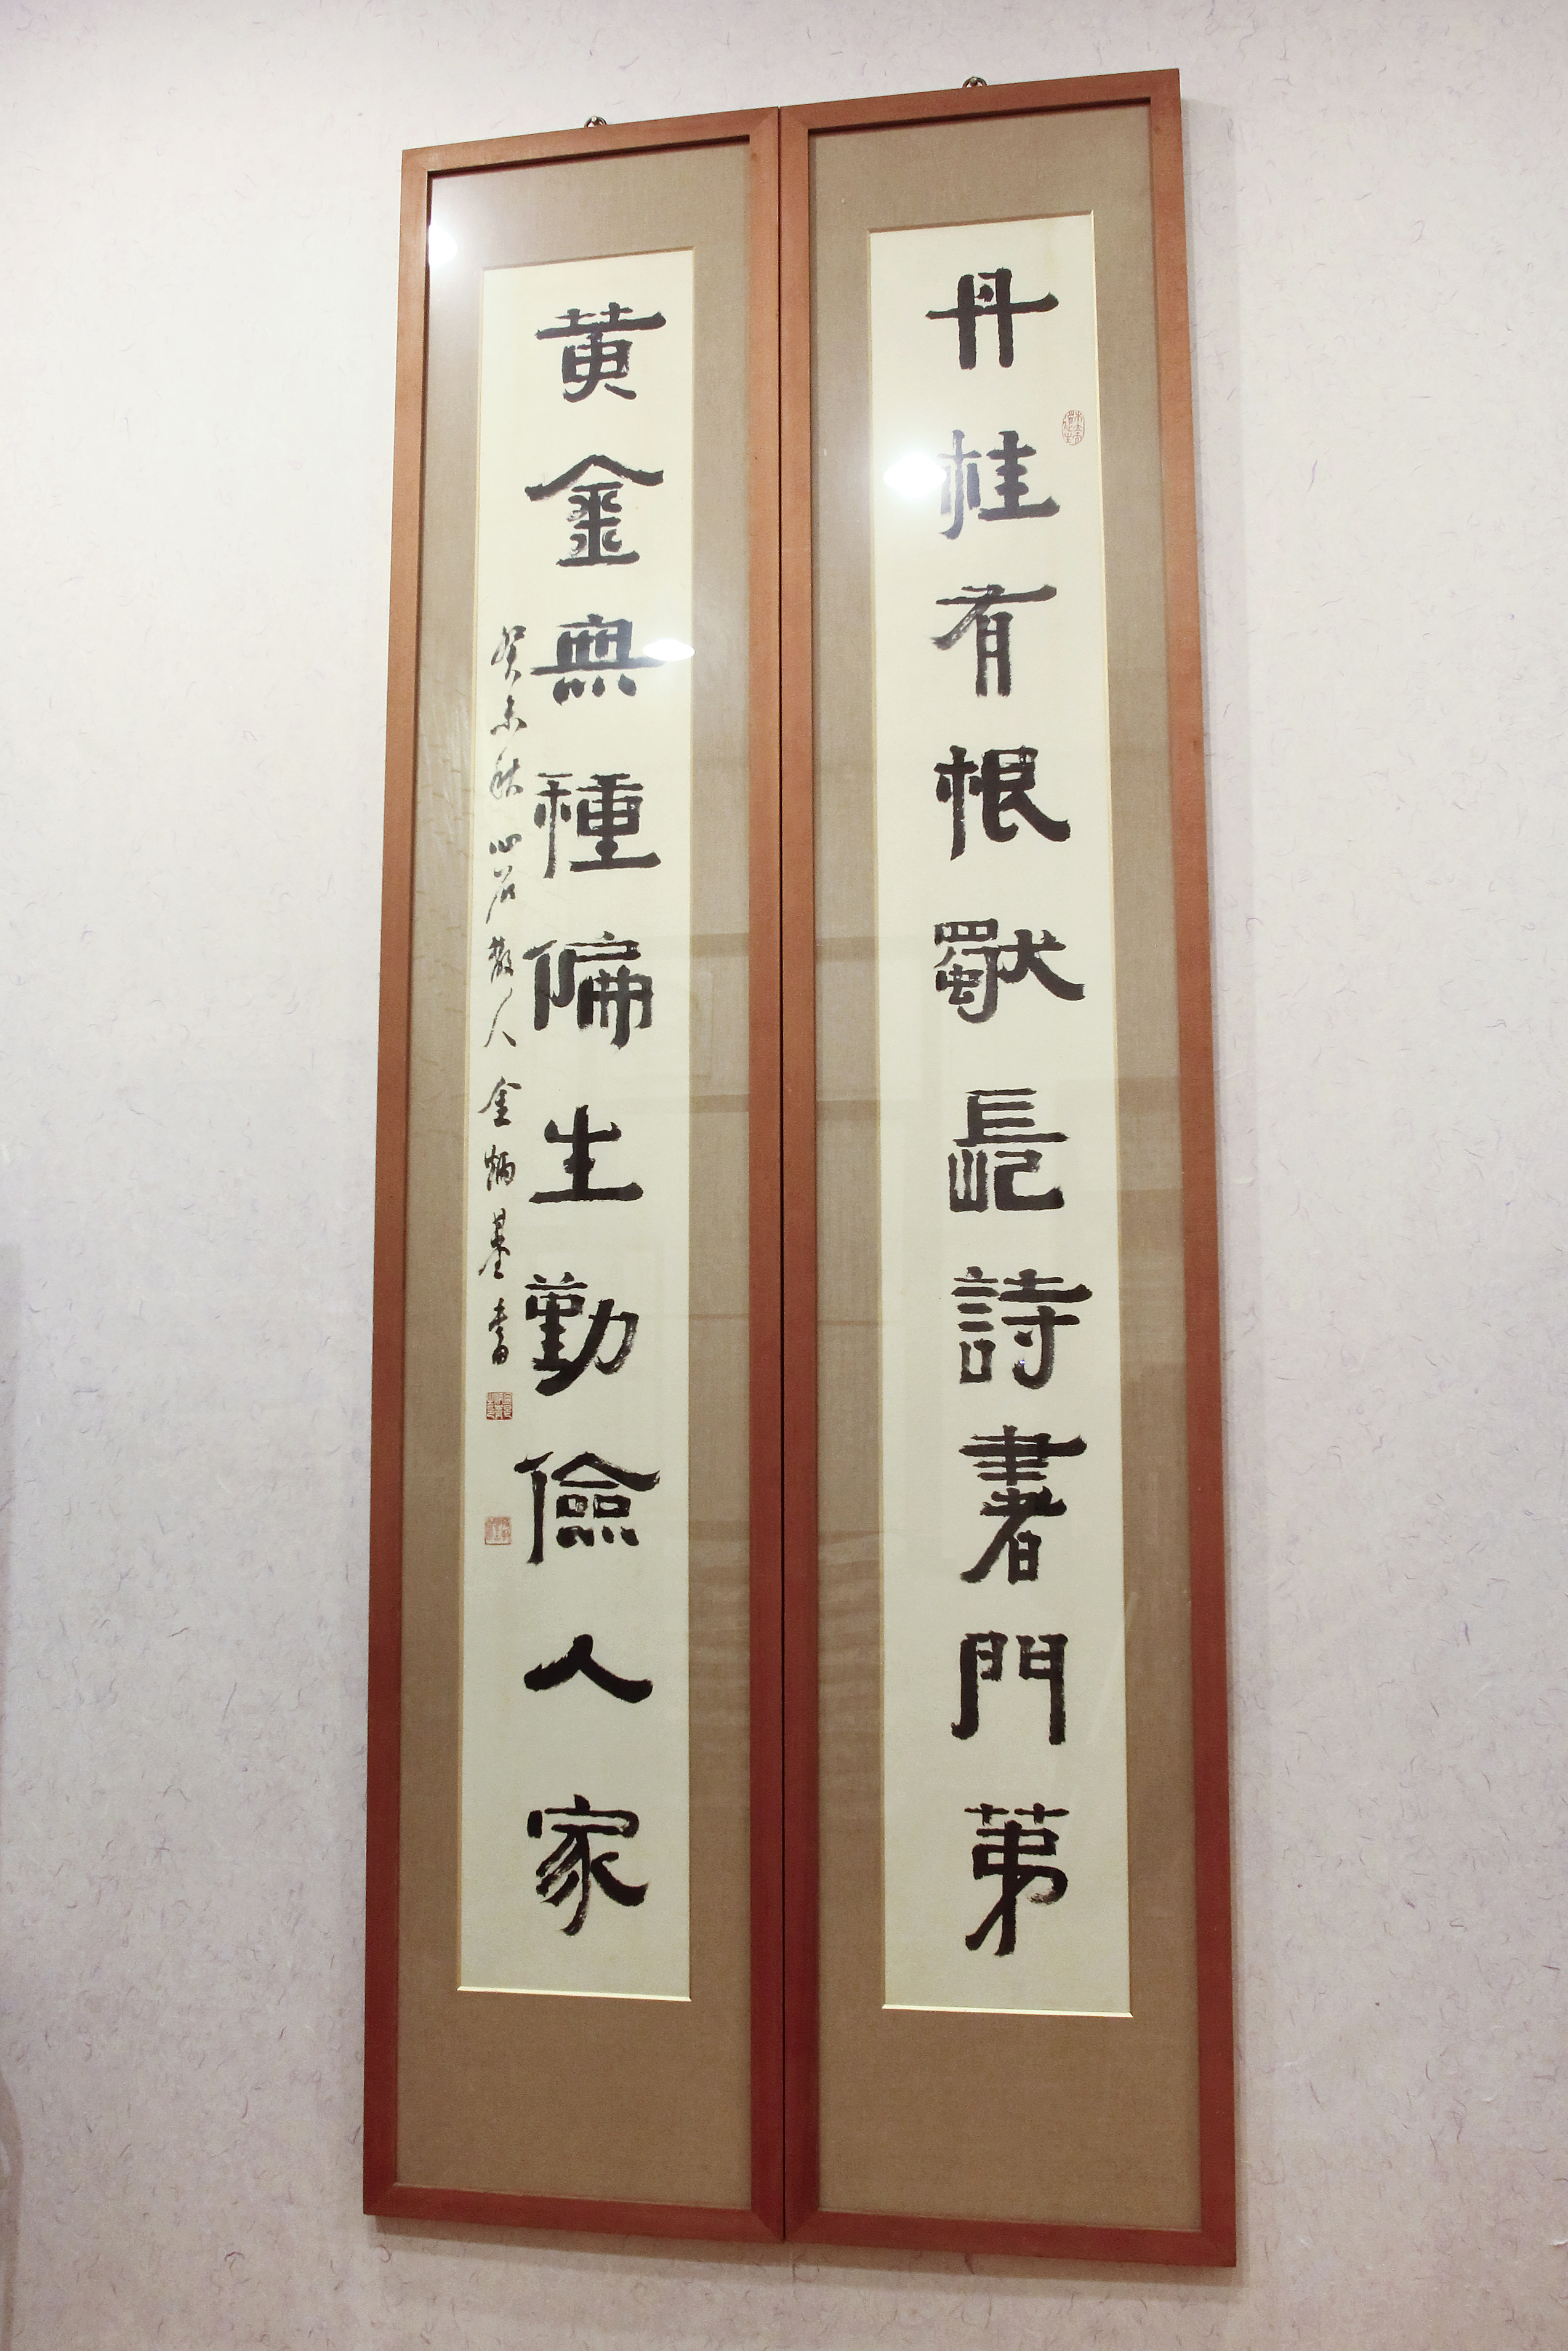 丹桂有根獨長詩書門第
黃金無種偏生勤儉人家
癸未秋心石散人金炳基書